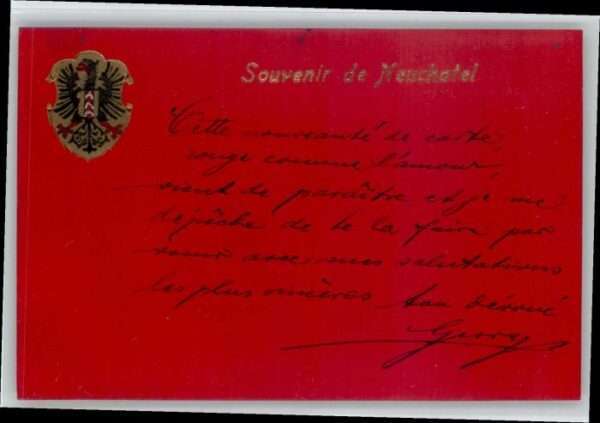 Souvenir de Neuchatel
Cette nouveauté de carte,
rouge comme l'amour,
vient de paraître et je me
dépêche de te la faire par
venir avec mes salutations
les plus sincères ton dévoué